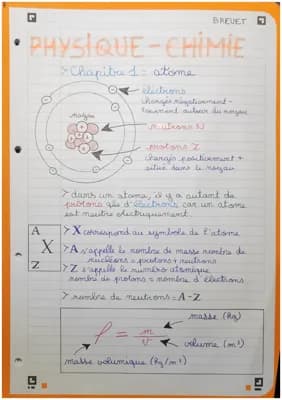 BREVET
PHYSIQUE - CHIMIE
> Chapitre 1 : atome
électrons
chargés négativement -
tournent autour du noyau
noyau
neutrons N
protons Z
chargés positivement +
situé dans le noyau
> dans un atome, il y a autant de
protons que d'électrons car un atome
est neutre électriquement.
A
X
Z
> X correspond au symbole de l'atome
> A s'appelle le nombre de masse nombre de
nucléons = protons + neutrons
> Z s'appelle le numéro atomique
nombre de protons = nombre d'électrons
> nombre de neutrons = A - Z
masse (Kg)
ρ = m
v
volume (m³)
masse volumique (Kg/m³)